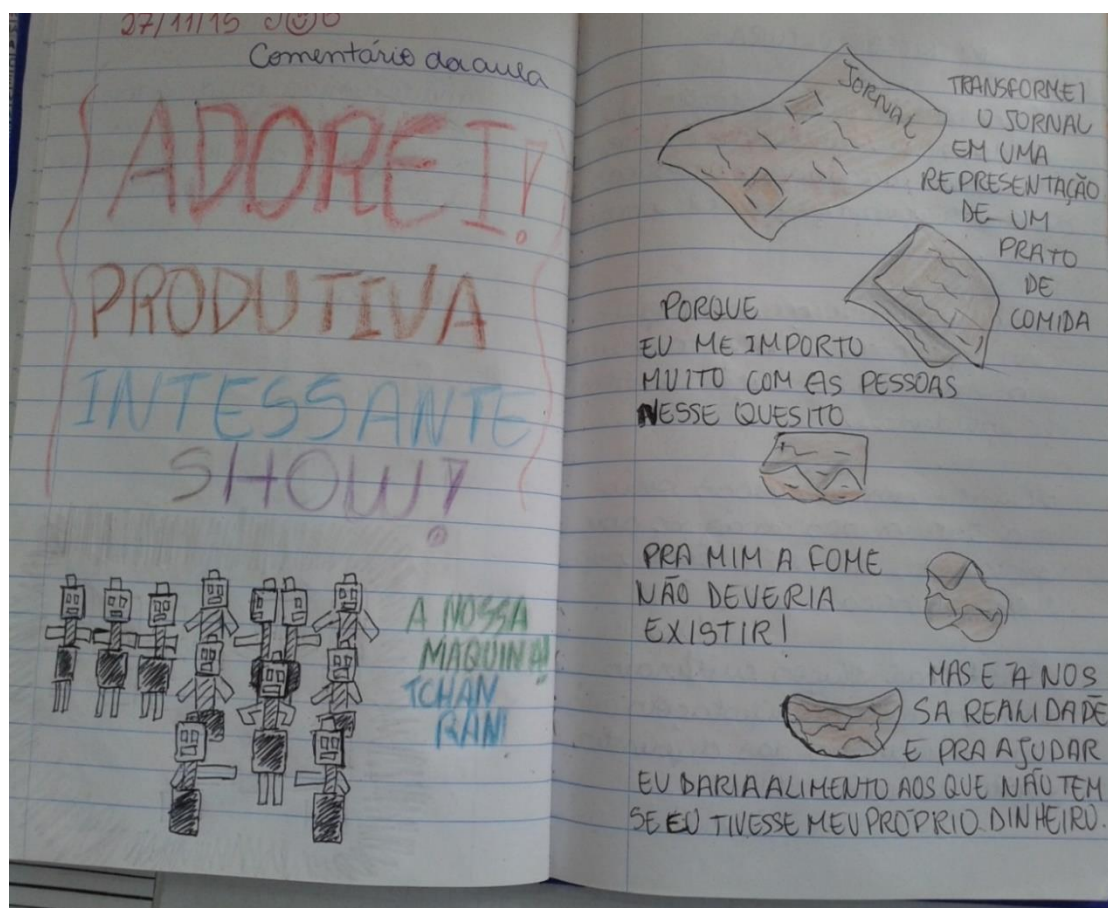 27/11/15
Comentário da aula
ADOREI!
PRODUTIVA
INTESSANTE
SHOW!
A NOSSA
MAQUINA!
TCHAN
RAN!
JORNAL
TRANSFORMEI
O JORNAL
EM UMA
REPRESENTAÇÃO
DE UM
PRATO
DE
COMIDA
PORQUE
EU ME IMPORTO
MUITO COM AS PESSOAS
NESSE QUESITO
PRA MIM A FOME
NÃO DEVERIA
EXISTIR!
MAS E A NOS
SA REALIDADE
E PRA AJUDAR
EU DARIA ALIMENTO AOS QUE NÃO TEM
SE EU TIVESSE MEU PRÓPRIO DINHEIRO.